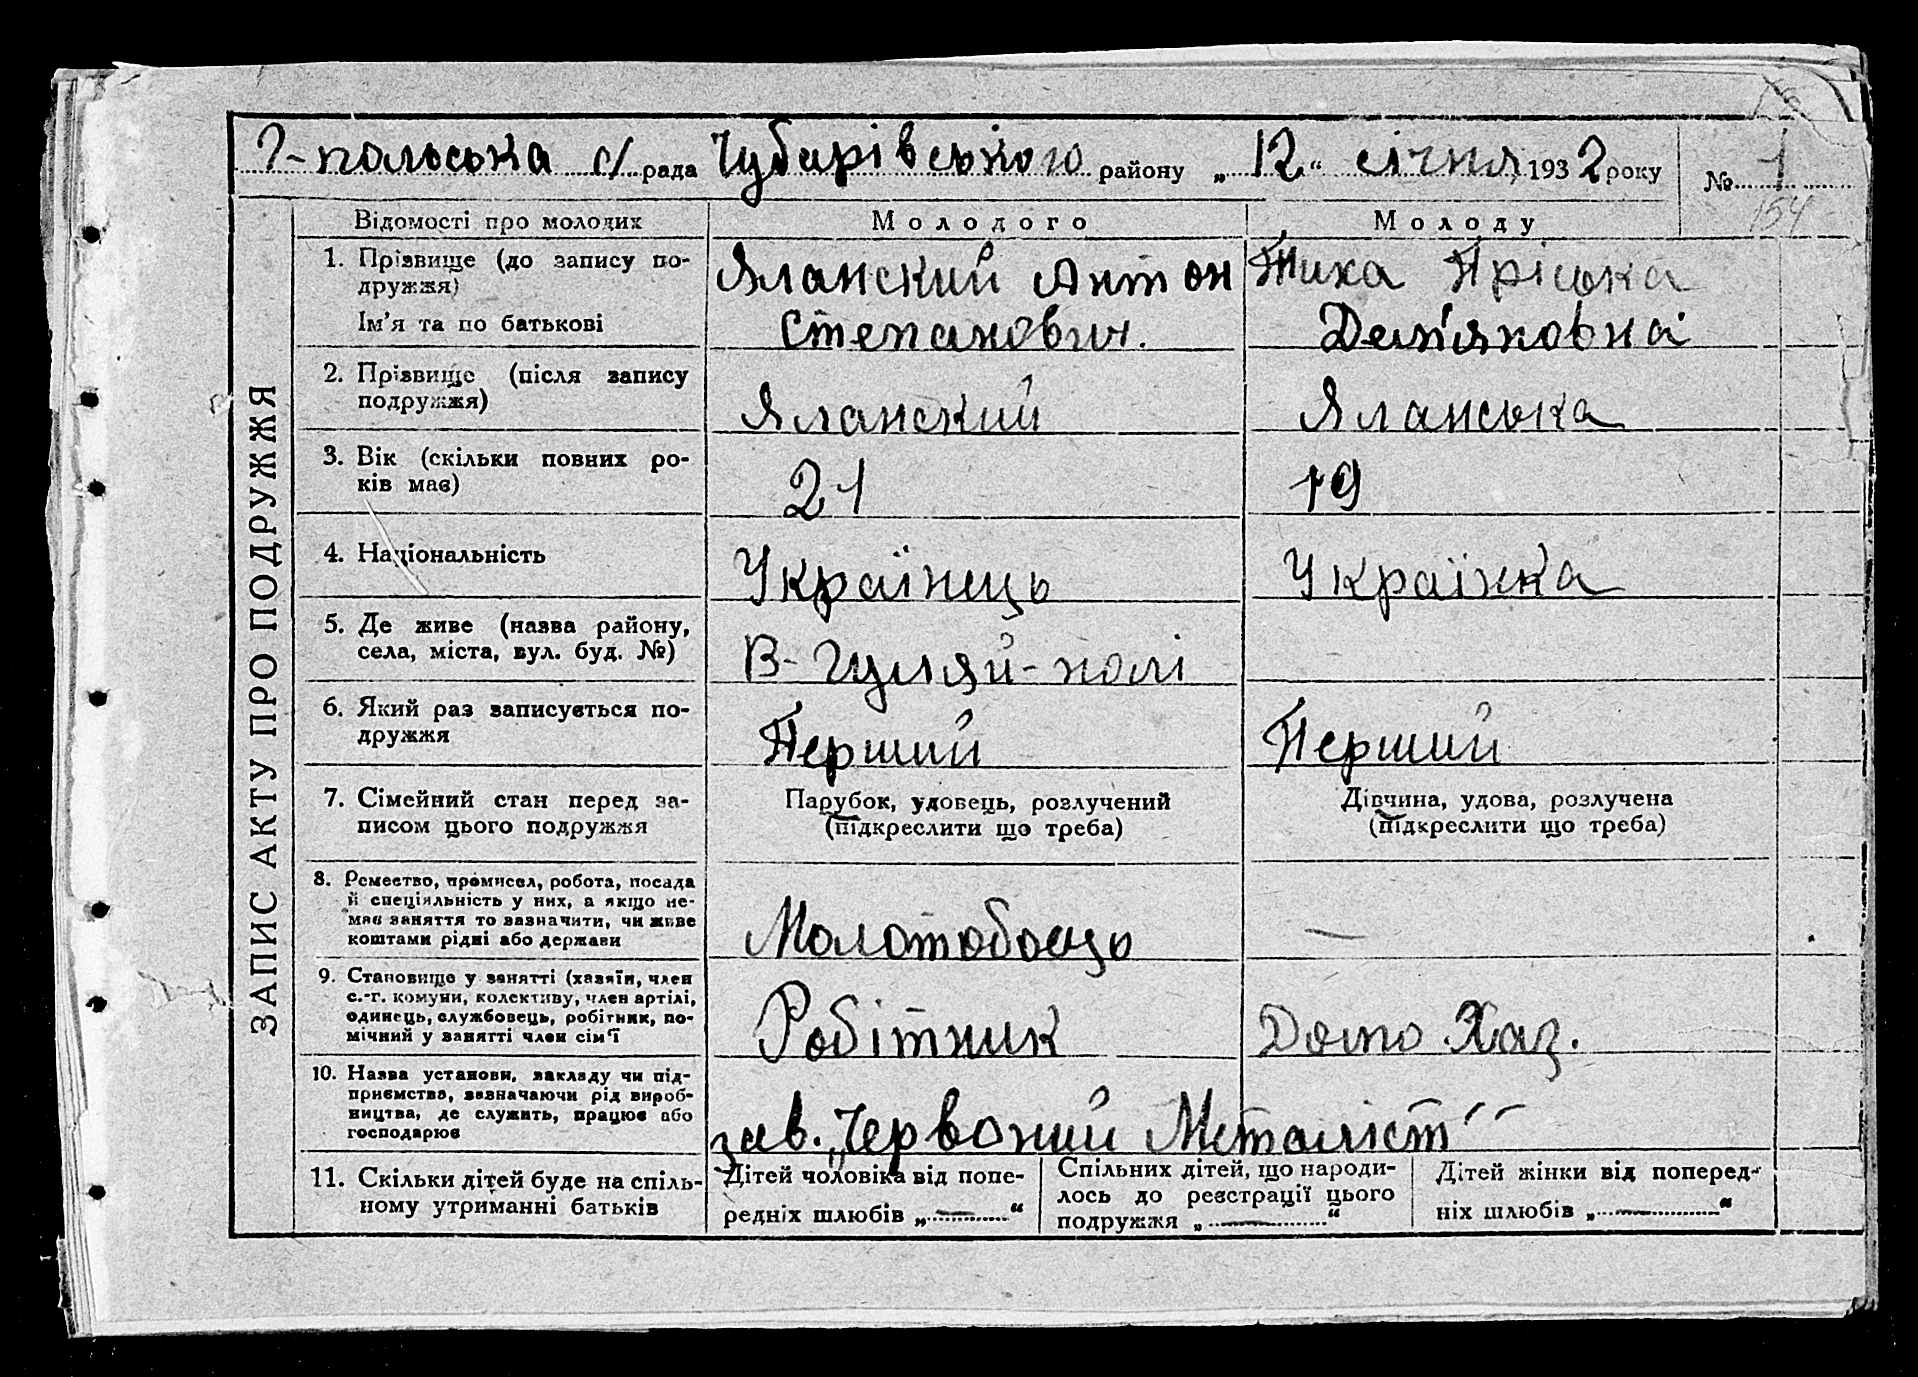 Г-польська с/рада Чубарівського району „12“ січня 1932 року № 1
154
ЗАПИС АКТУ ПРО ПОДРУЖЖЯ
Відомості про молодих
Молодого
Молоду
1. Прізвище (до запису по-
дружжя)
Ім’я та по батькові
Яланский Антон
Степанович.
Тиха Пріська
Дем'яновна
2. Прізвище (після запису
подружжя)
Яланский
Яланська
3. Вік (скільки повних ро-
ків має)
21
19
4. Національність
Українець
Українка
5. Де живе (назва району,
села, міста, вул. буд. №)
В-Гуляй-полі
6. Який раз записується по-
дружжя
Перший
Перший
7. Сімейний стан перед за-
писом цього подружжя
Парубок, удовець, розлучений
(підкреслити що треба)
Дівчина, удова, розлучена
(підкреслити що треба)
8. Ремество, промисел, робота, посада
й спеціяльність у них, а якщо не-
має заняття то зазначити, чи живе
коштами рідні або держави
Молотобоець
—
9. Становище у занятті (хазяїн, член
с.-г. комуни, колективу, член артілі,
одинець, службовець, робітник, по-
мічний у занятті член сім’ї
Робітник
Домо Хаз.
10. Назва установи, закладу чи під-
приємства, зазначаючи рід вироб-
ництва, де служить, працює або
господарює
зав. „Червоний Металіст"
11. Скільки дітей буде на спіль-
ному утриманні батьків
Дітей чоловіка від попе-
редніх шлюбів „—“
Спільних дітей, що народи-
лось до реєстрації цього
подружжя „—“
Дітей жінки від поперед-
ніх шлюбів „—“